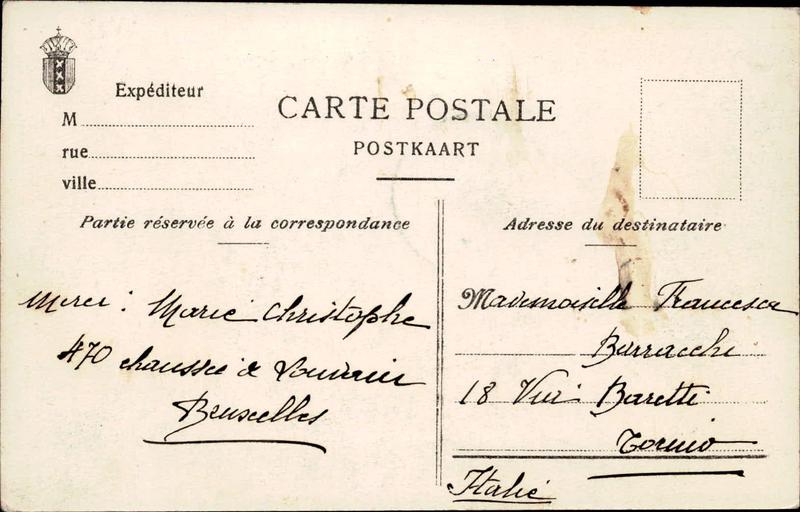 Expéditeur
M
rue
ville
CARTE POSTALE
POSTKAART
Partie réservée à la correspondance
Adresse du destinataire
Merci : Marie Christophe
470 chaussée à Louvain
Bruxelles
Mademoiselle Francesca
Barracchi
18 Via Baretti
Torino
Italie